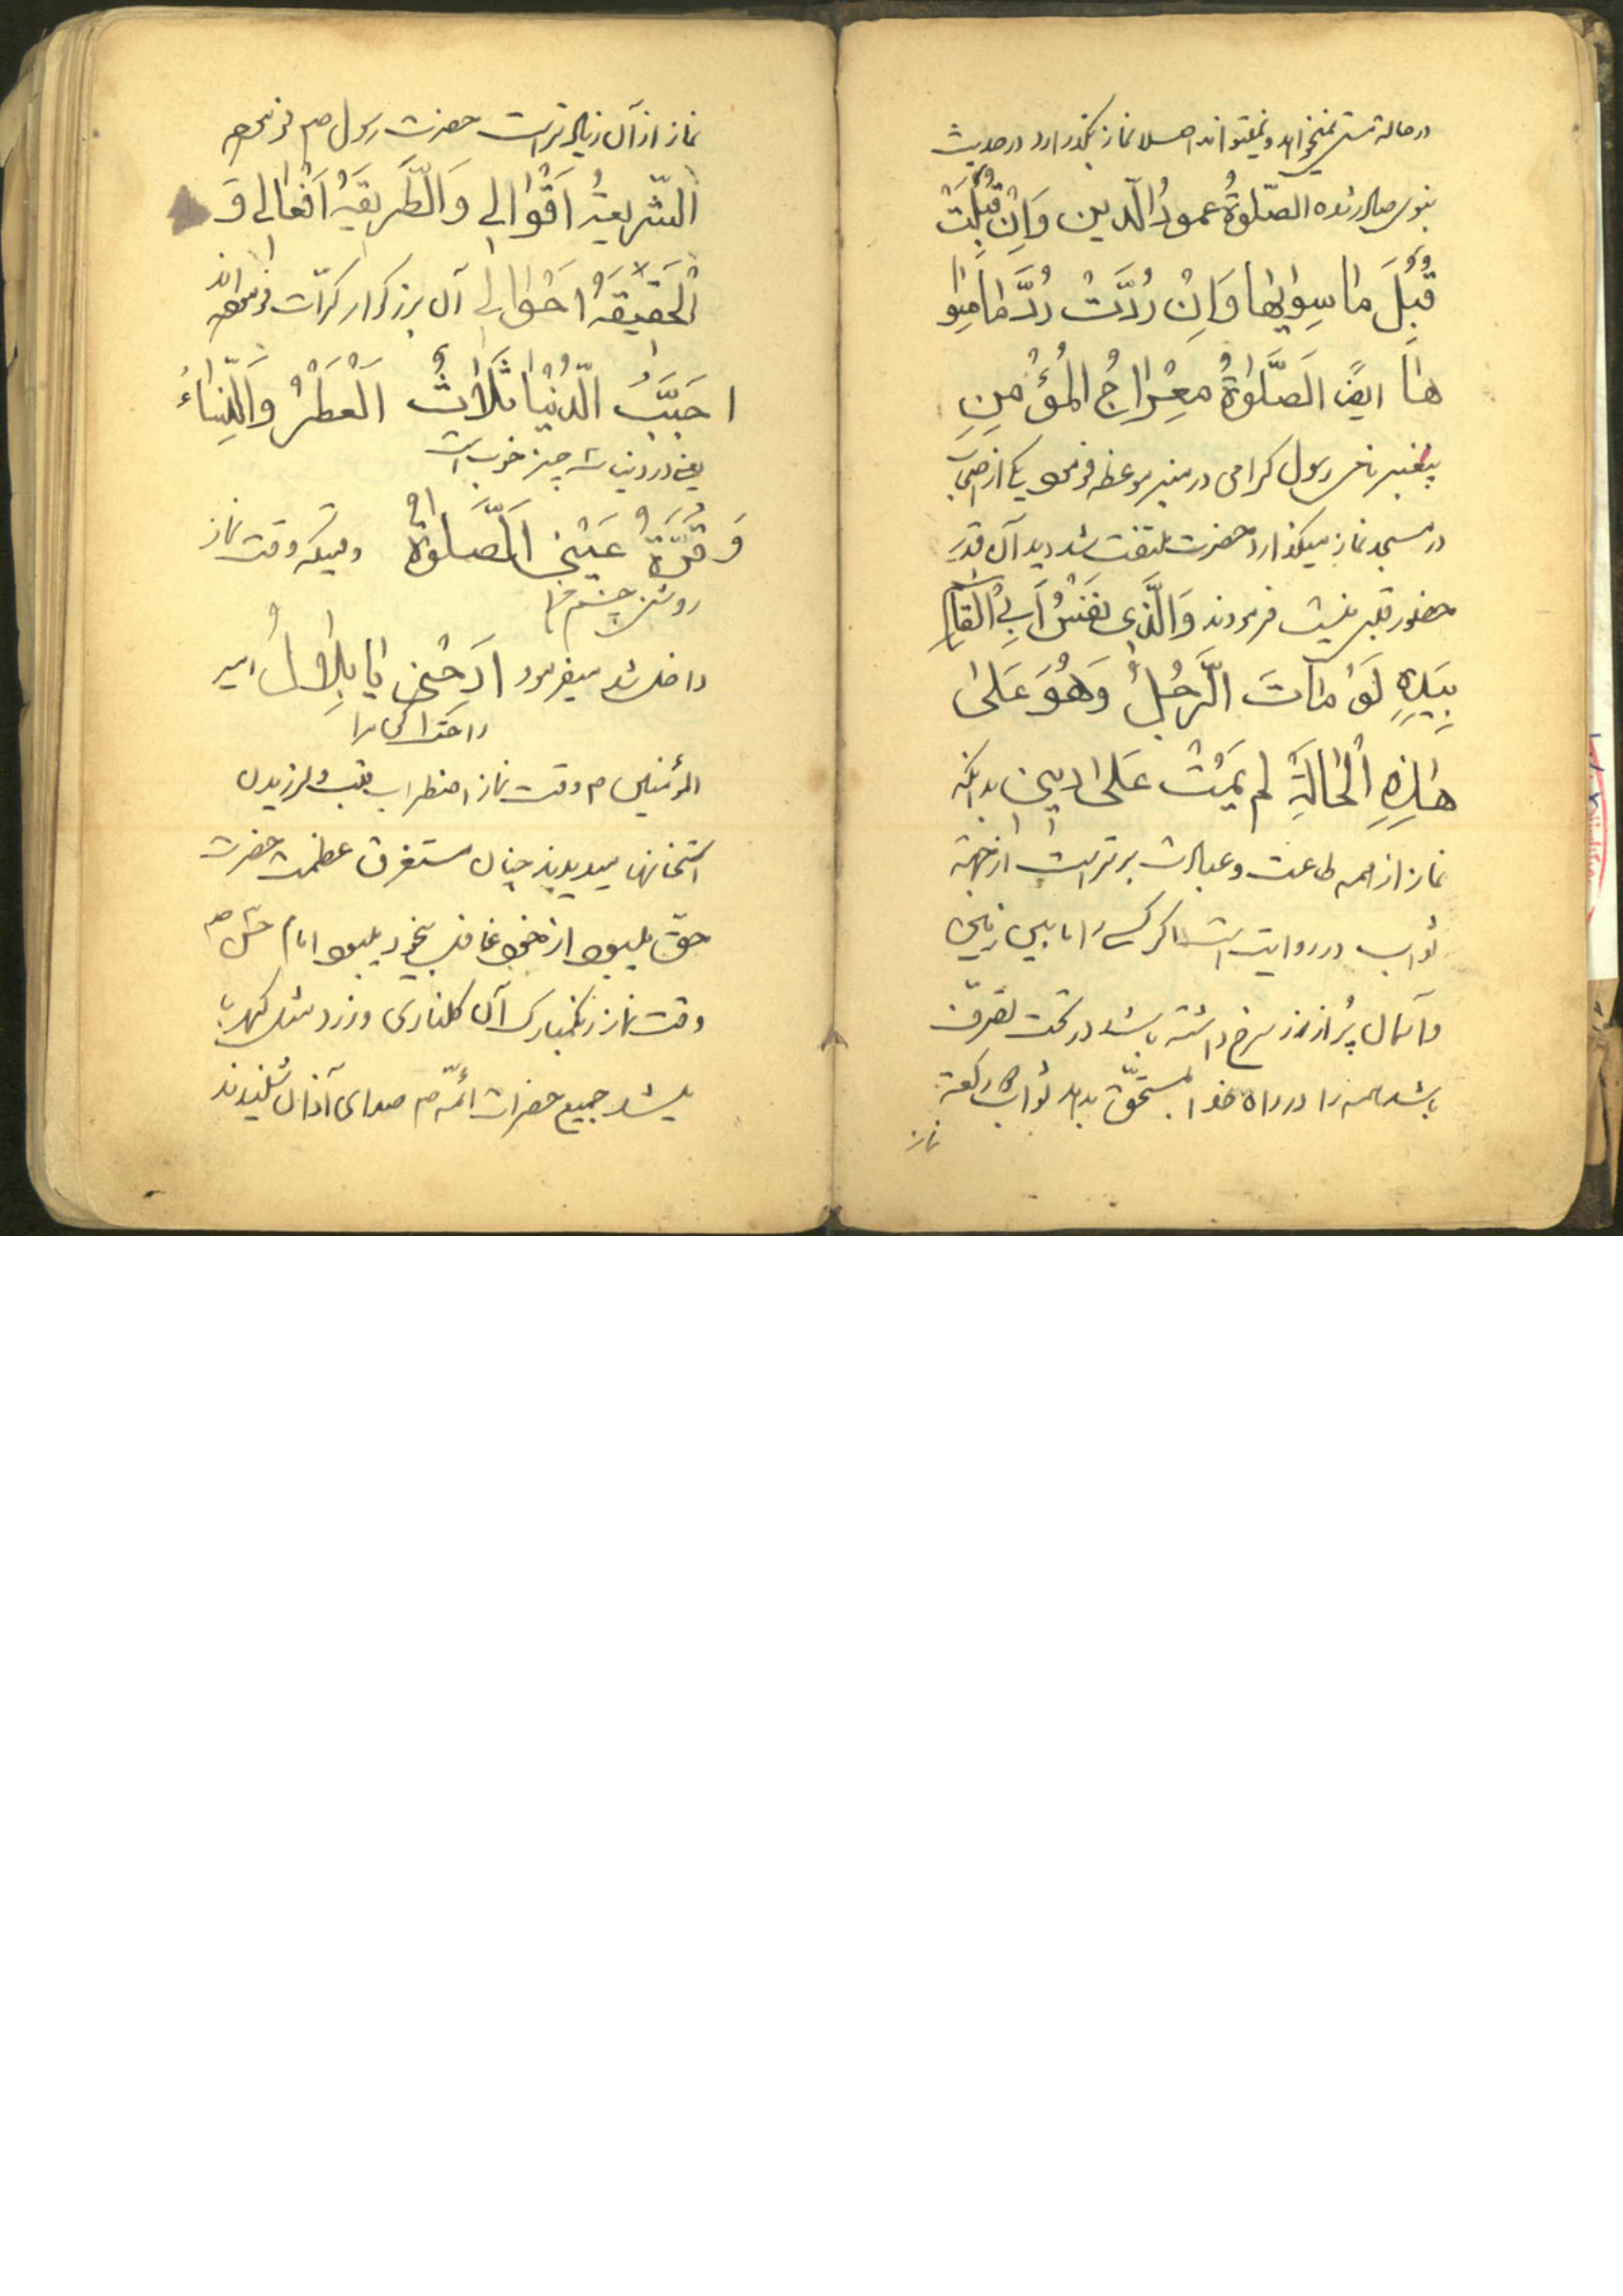 در حالة مستی نمیخواهد و نمیتواند اصلا نماز بگذارد در حدیث
نبوی صادر شده الصّلوةُ عمودُ الّدین وَاِنْ قُبِلَتْ
قُبِلَ مٰا سِویٰها وَاِنْ رُدَّتْ رُدَّ مٰا سِوٰا
هٰا ایضً الَصَّلٰوةُ مِعْرٰاجُ الْمُؤْمِنِ
پیغمبر رسول کرامی در منبر موعظه فرمود یکی از اصحاب
در مسجد نماز میکذارد حضرت ملتفت شد دید آن قدر
حضور قلبی نیست فرمودند وَالَّذِی نفَسْ اَبِی الْقاسم
بِیَدِهِ لَوْ مٰاتَ الَّرجُلُ وَهُوَ عَلیٰ
هٰذِهِ الْحٰالَةِ لم یَمُتْ عَلیٰ دینی بدانکه
نماز از همه طاعت و عبادت برتر است از جهة
ثواب در روایت است اکر کسی مابین زمین
و آسمال پُر از زر سرخ داشته باشد در تحت تصرّف
باشد همه را در راه خدا بمستحقّ بدهد ثواب رکعة
نماز
نماز از آن زیاد تر است حضرت رسول ص فرموده
الشّریعةُ اَقْوٰالی وَالّطَریقَةُ اَفْعٰالی وَ
الْحَقیقَةُ اَحْوٰالی آن بزرکوار کرّات فرموده اند
احَبَبُّ الّدُنْیٰا ثَلٰاثٌ اَلْعَطْرُ وَالّنِسٰاءُ
یعنی در دنیا سه چیز خوب است
وَ قُرَّةُ عَیْنی اَلصَّلٰوة وقتیکه وقت نماز
روشنی چشم ما
داخل شد میفرمود اَرِحْنی یٰا بِلٰالُ امیر
راحت کن مرا
المؤمنین م وقت نماز اضطراب قلب و لرزیدن
استخانها میدیدند چنان مستغرق عظمت حضرت
حقّ میبود از خود غافل بیخود میبود امام حسن ص
وقت نماز رنکمبارک آن کلناری و زرد مثل کهربا
میشد جمیع حضرات ائمّه ص صدای آذان شنیدند